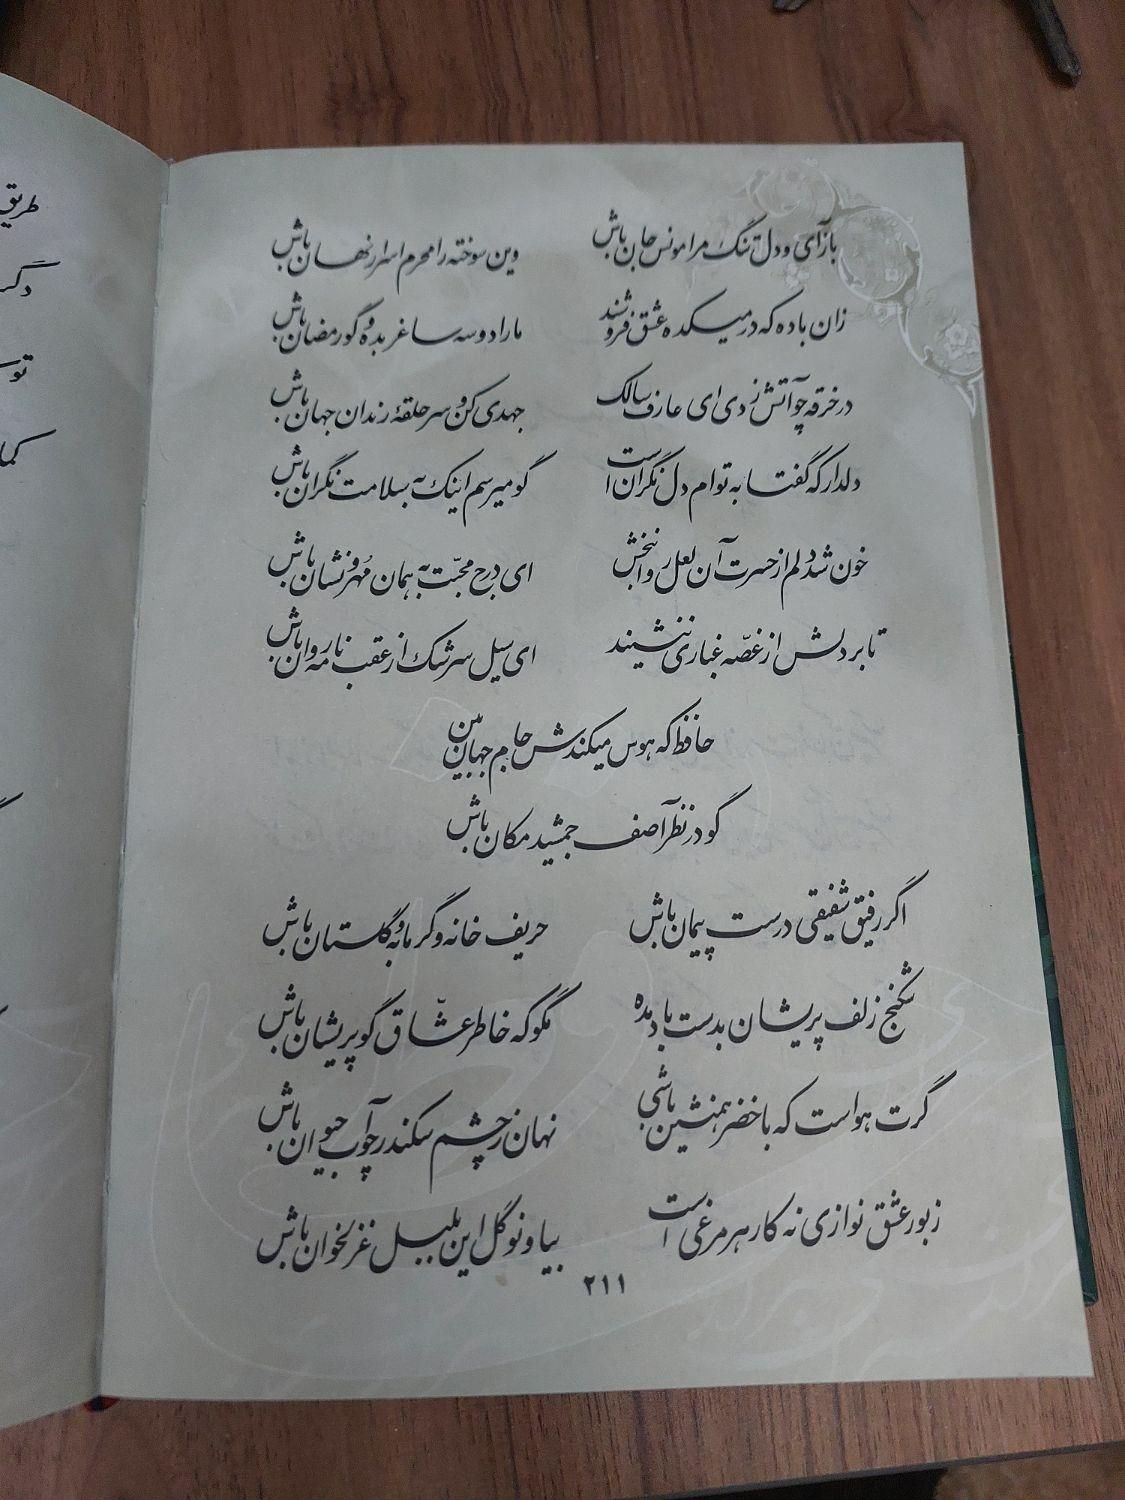 بازآی و دل تنگ مرا مونس جان باش وین سوخته را محرم اسرار نهان باش
زان باده که در میکده عشق فروشند ما را دو سه ساغر بده و گو رمضان باش
در خرقه چو آتش زدی ای عارف سالک جهدی کن و سر حلقهٔ رندان جهان باش
دلدار که گفتا به توام دل نگران است گو میرسم اینک به سلامت نگران باش
خون شد دلم از حسرت آن لعل روانبخش ای درج محبّت به همان مُهر و نشان باش
تا بر دلش از غصّه غباری ننشیند ای سیل سرشک از عقب نامه روان باش
حافظ که هوس میکندش جام جهان‌بین
گو در نظر آصف جمشید مکان باش
اگر رفیق شفیقی درست پیمان باش حریف خانه و گرمابه و گلستان باش
شکنج زلف پریشان بدست باد مده مگو که خاطر عشّاق گو پریشان باش
گرت هواست که با خضر همنشین باشی نهان ز چشم سکندر چو آب حیوان باش
زبور عشق نوازی نه کار هر مرغی است بیا و نوگل این بلبل غزلخوان باش
۲۱۱
طریق
دگر